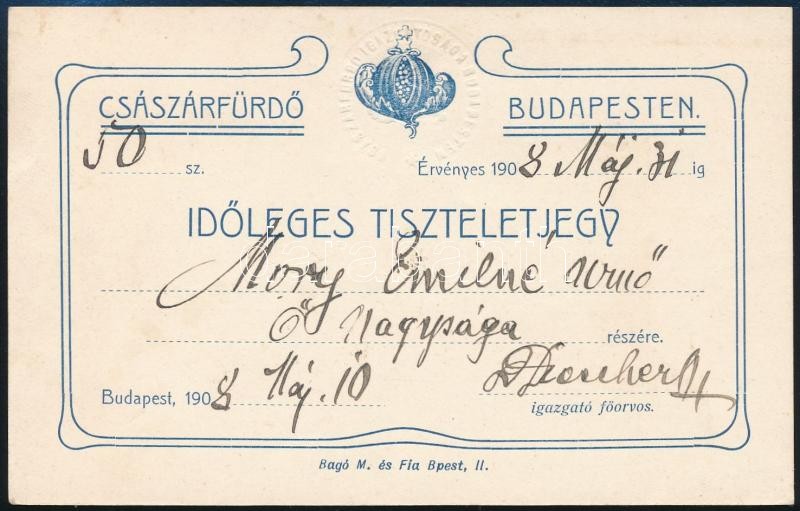 CSÁSZÁRFÜRDŐ BUDAPESTEN.
50 sz. Érvényes 1908 Máj. 31 ig
IDŐLEGES TISZTELETJEGY
Mory Emilné Urnő
Ő Nagysága részére.
Budapest, 1908 Máj. 10
igazgató főorvos.
Bagó M. és Fia Bpest, II.